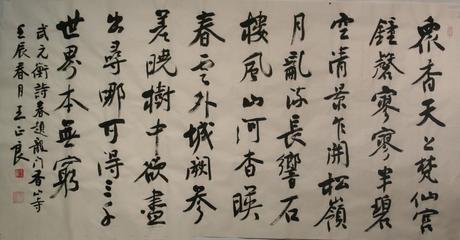 衆香天上梵仙宫
鍾磬寥寥半碧
空清景乍開松嶺
月亂流長響石
樓風山河杳暎
春雲外城闕參
差曉樹中欲盡
出尋哪可得三千
世界本無窮
武元衡詩春題龍门香山寺
壬辰春月王正良